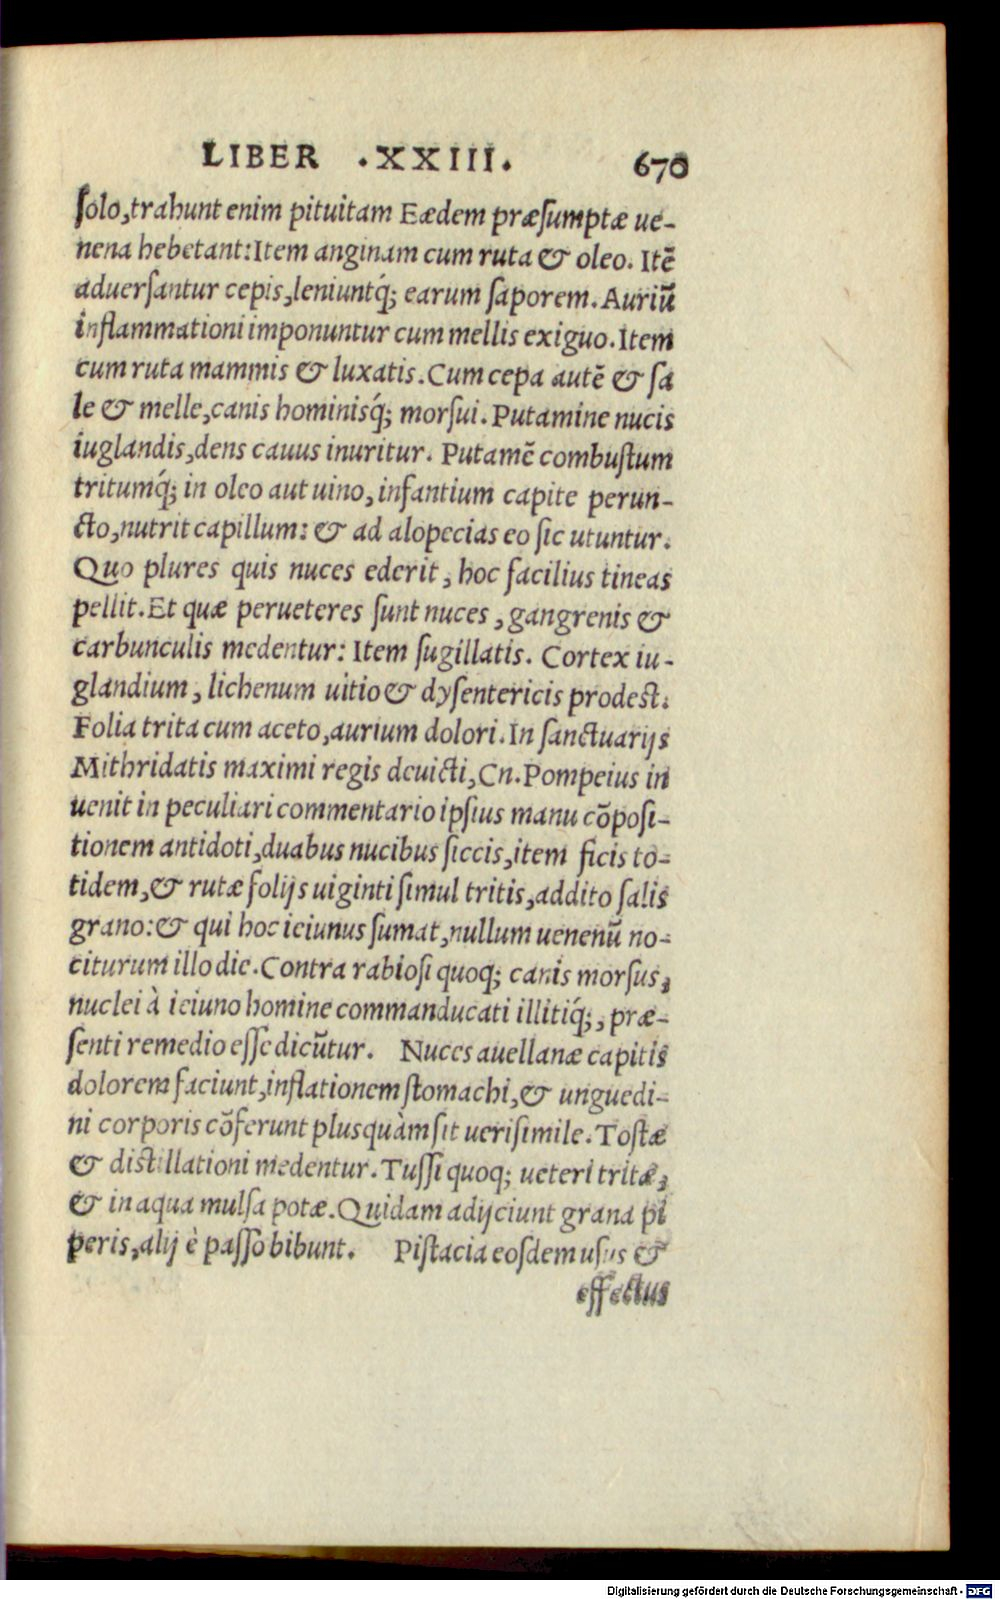 LIBER .XXIII. 670
solo,trahunt enim pituitam Eædem præsumptæ ue-
nena hebetant:Item anginam cum ruta & oleo. Itē
aduersantur cepis,leniuntq́; earum saporem. Auriū
inflammationi imponuntur cum mellis exiguo. Item
cum ruta mammis & luxatis. Cum cepa autē & sa
le & melle,canis hominisq́; morsui. Putamine nucis
iuglandis,dens cauus inuritur. Putamē combustum
tritumq́; in oleo aut uino, infantium capite perun-
cto,nutrit capillum: & ad alopecias eo sic utuntur.
Quo plures quis nuces ederit, hoc facilius tineas
pellit. Et quæ perueteres sunt nuces, gangrenis &
carbunculis medentur: Item sugillatis. Cortex iu-
glandium, lichenum uitio & dysentericis prodest.
Folia trita cum aceto,aurium dolori. In sanctuarijs
Mithridatis maximi regis deuicti, Cn. Pompeius in
uenit in peculiari commentario ipsius manu cōposi-
tionem antidoti,duabus nucibus siccis,item ficis to-
tidem,& rutæ folijs uiginti simul tritis,addito salis
grano:& qui hoc ieiunus sumat,nullum uenenū no-
citurum illo die. Contra rabiosi quoq; canis morsus,
nuclei à ieiuno homine commanducati illitiq́;, præ-
senti remedio esse dicūtur. Nuces auellanæ capitis
dolorem faciunt,inflationem stomachi,& unguedi-
ni corporis cōferunt plusquàm sit uerisimile. Tostæ
& distillationi medentur. Tussi quoq; ueteri tritæ,
& in aqua mulsa potæ. Quidam adijciunt grana pi
peris,alij è passo bibunt. Pistacia eosdem usus &
effectus
Digitalisierung gefördert durch die Deutsche Forschungsgemeinschaft - DFG